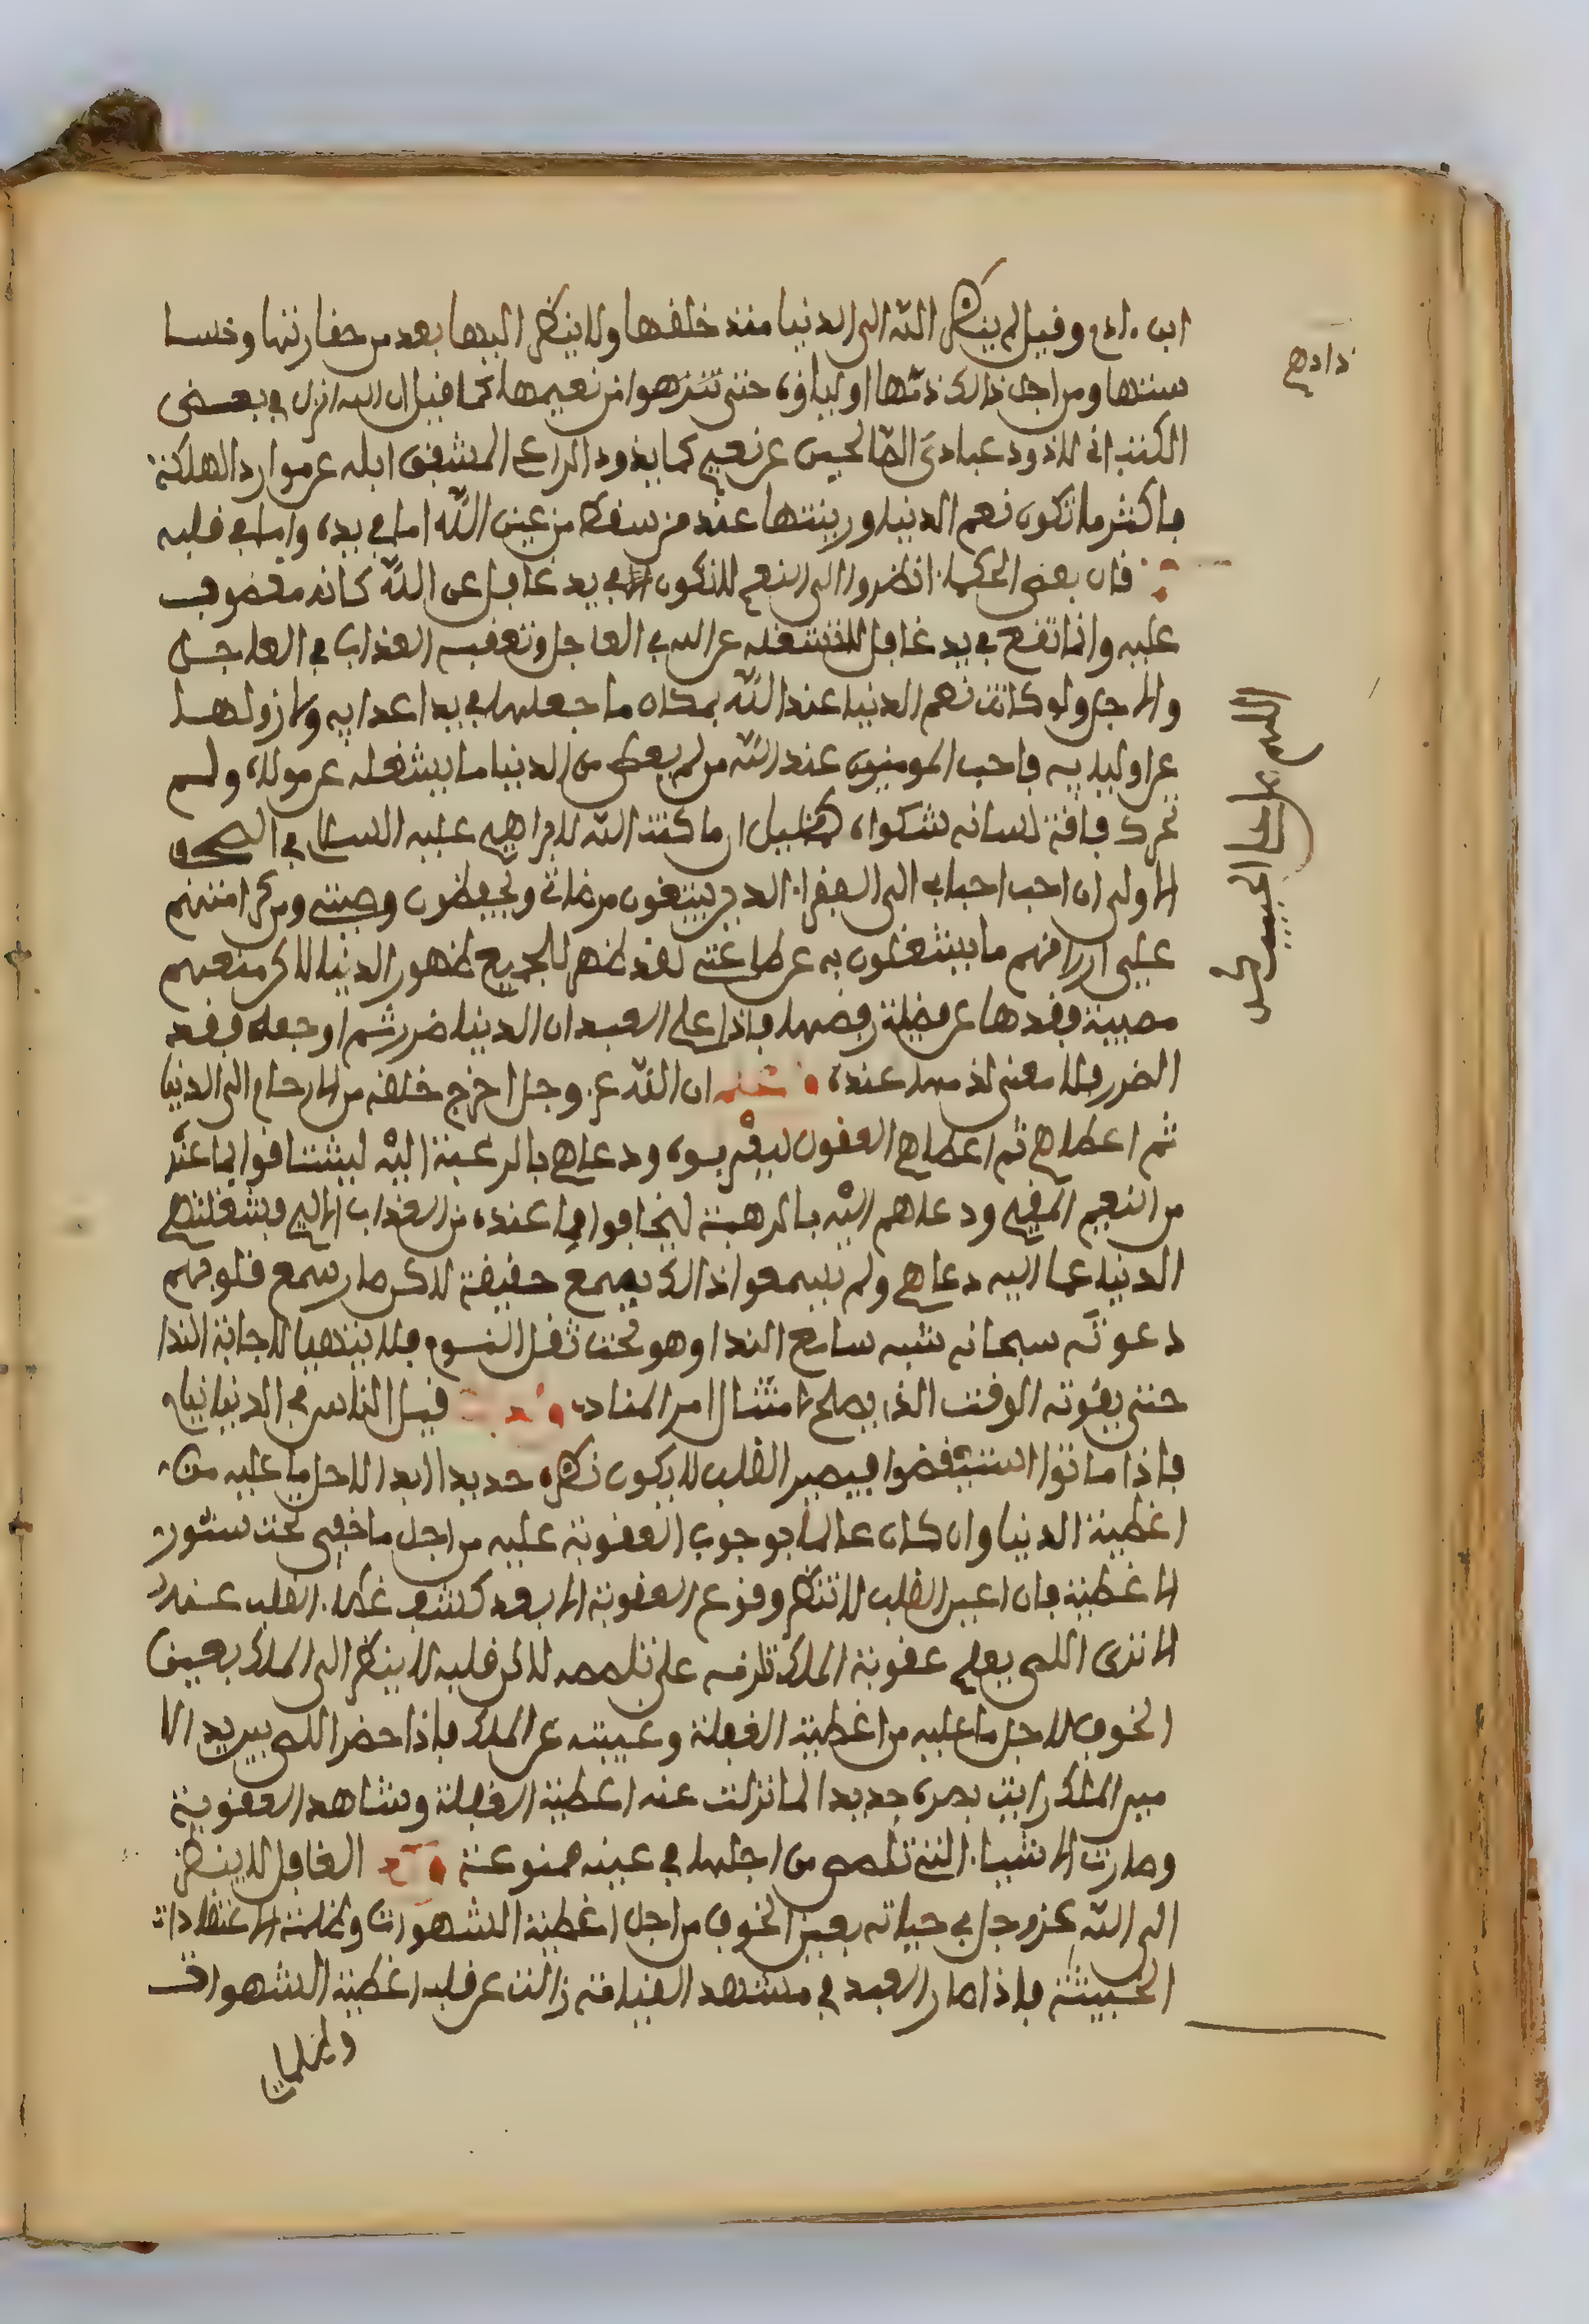 ابن ءادم وقيل لم ينظر الله الى الدنيا منذ خلقها ولا ينظر اليها بعد من حقارتها وخسا
ستها ومن اجل ذالك ذمها اولياؤه حتى تنزهوا من نعيمها كما قيل ان الله انزل في بعض
الكتب اني لاذود عبادي الصالحين عن نعيم كما يذود الراعي المشفق ابله عن موارد الهلكة
فاكثر ما تكون نعم الدنيا وزينتها عند من سقط من عين الله اما في يده واما في قلبه
قال بعض الحكماء انظروا الى النعم لا تكون الا في يد غافل عن الله كانه مغضوب
عليه وانما تقع في يد غافل لتشغله عن الله في العاجل وتعقبه العذاب في العاجل
والاجل ولو كانت نعم الدنيا عند الله بمكان ما جعلها في يد اعدايه ولا زولها
عن اوليايه فاحب المومنين عند الله من لم يعط من الدنيا ما يشغله عن مولاه ولم
تحرك فاقة لسانه شكواه كما قيل ان ما كتب الله لابراهيم عليه السلام في الصحف
الاولى ان احب احبابي الى الفقراء الذين يبتغون مرضاتي ويحفظون وصيتي ومن كرامتهم
علي ان ارزقهم ما يشتغلون به عن طاعتي لقد ظهر للجميع ظهور الدنيا لاكن منعهم
مصيبة فقدها عن فضيلة رفضها فاذا علم العبد ان الدنيا ضرر ثم اوجعه فقد
الضرر فلا معنى لذمها عنده ان الله عز وجل اخرج خلقه من الارحام الى الدنيا
ثم اعطاهم ثم اعطاهم العقول ليعرفوه ودعاهم بالرغبة اليه ليشتاقوا لما عنده
من النعيم المقيم ودعاهم اليه بالرهبة ليخافوا مما عنده من العذاب الاليم فشغلتهم
الدنيا عما اليه دعاهم ولم يسمعوا اذ الذي يسمع حقيقة لاكن صار سمع قلوبهم
دعوته سبحانه شبه سامع الندا وهو تحت ثقل النوم فلا يتهيا لاجابة الندا
حتى يفوته الوقت الذي يصلح لامتثال امر المنادي قيل الناس في الدنيا نيام
فاذا ماتوا استيقضوا فيصير القلب لا يكون نظره حديدا ابدا لاجل ما عليه من
اغطية الدنيا وان كان عالما بوجوب العقوبة عليه من اجل ما خفي تحت ستور
الاغطية فان اعين القلب لا تنظر وقوع العقوبة الا بعد كشف غطاء القلب عنه
الا ترى اللص يعلم عقوبة الملك تلزمه على تلصصه لاكن قلبه لا ينظر الى الملك بعين
الخوف لاجل ما عليه من اغطية الغفلة وغيبته عن الملك فاذا حضر اللص بين يدي الا
مير الملك رايت بصره حديدا لما نزلت عنه اغطية الغفلة وشاهد العقوبة
وصارت الاشياء التي تلصص من اجلها في عينه ممنوعة الغافل لا ينظر
الى الله عز وجل في حياته بعين الخوف من اجل اغطية الشهوات وظلمة الاعتقادات
الخبيثة فاذا صار العبد في مشهد القيامة زالت عن قلبه اغطية الشهوات
وظلمات
اللهم صل على الحبيب محمد